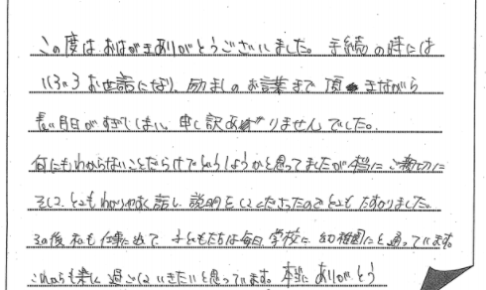 この度は、おはがきありがとうございました。手続の時には
いろいろお世話になり、励ましのお言葉まで頂きながら
長い月日がすぎてしまい、申し訳ありませんでした。
何にもわからないことだらけでどうしようかと思ってましたが本当にご親切に
そして、とてもわかりやすく話し、説明をしてくださったのでとてもたすかりました。
その後私も仕事に出て、子どもたちは毎日学校に幼稚園にと通っています。
これからも楽しく過ごしていきたいと思っています。本当にありがとう